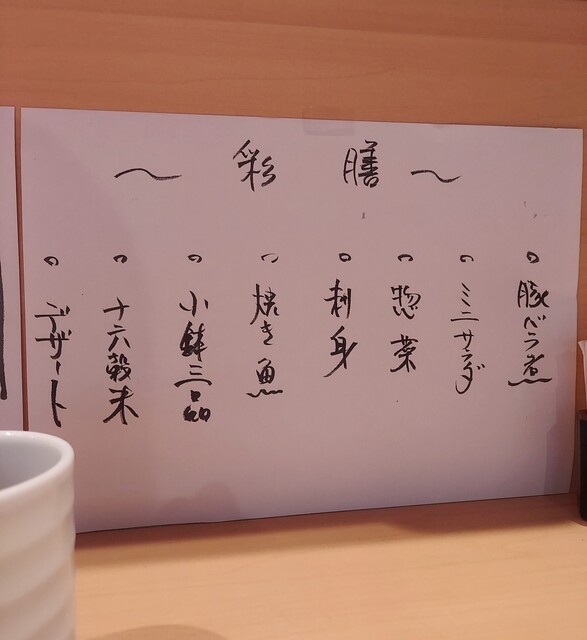 ～ 彩 膳 ～
○ 豚バラ煮
○ ミニサラダ
○ 惣菜
○ 刺身
○ 焼き魚
○ 小鉢三品
○ 十六穀米
○ デザート